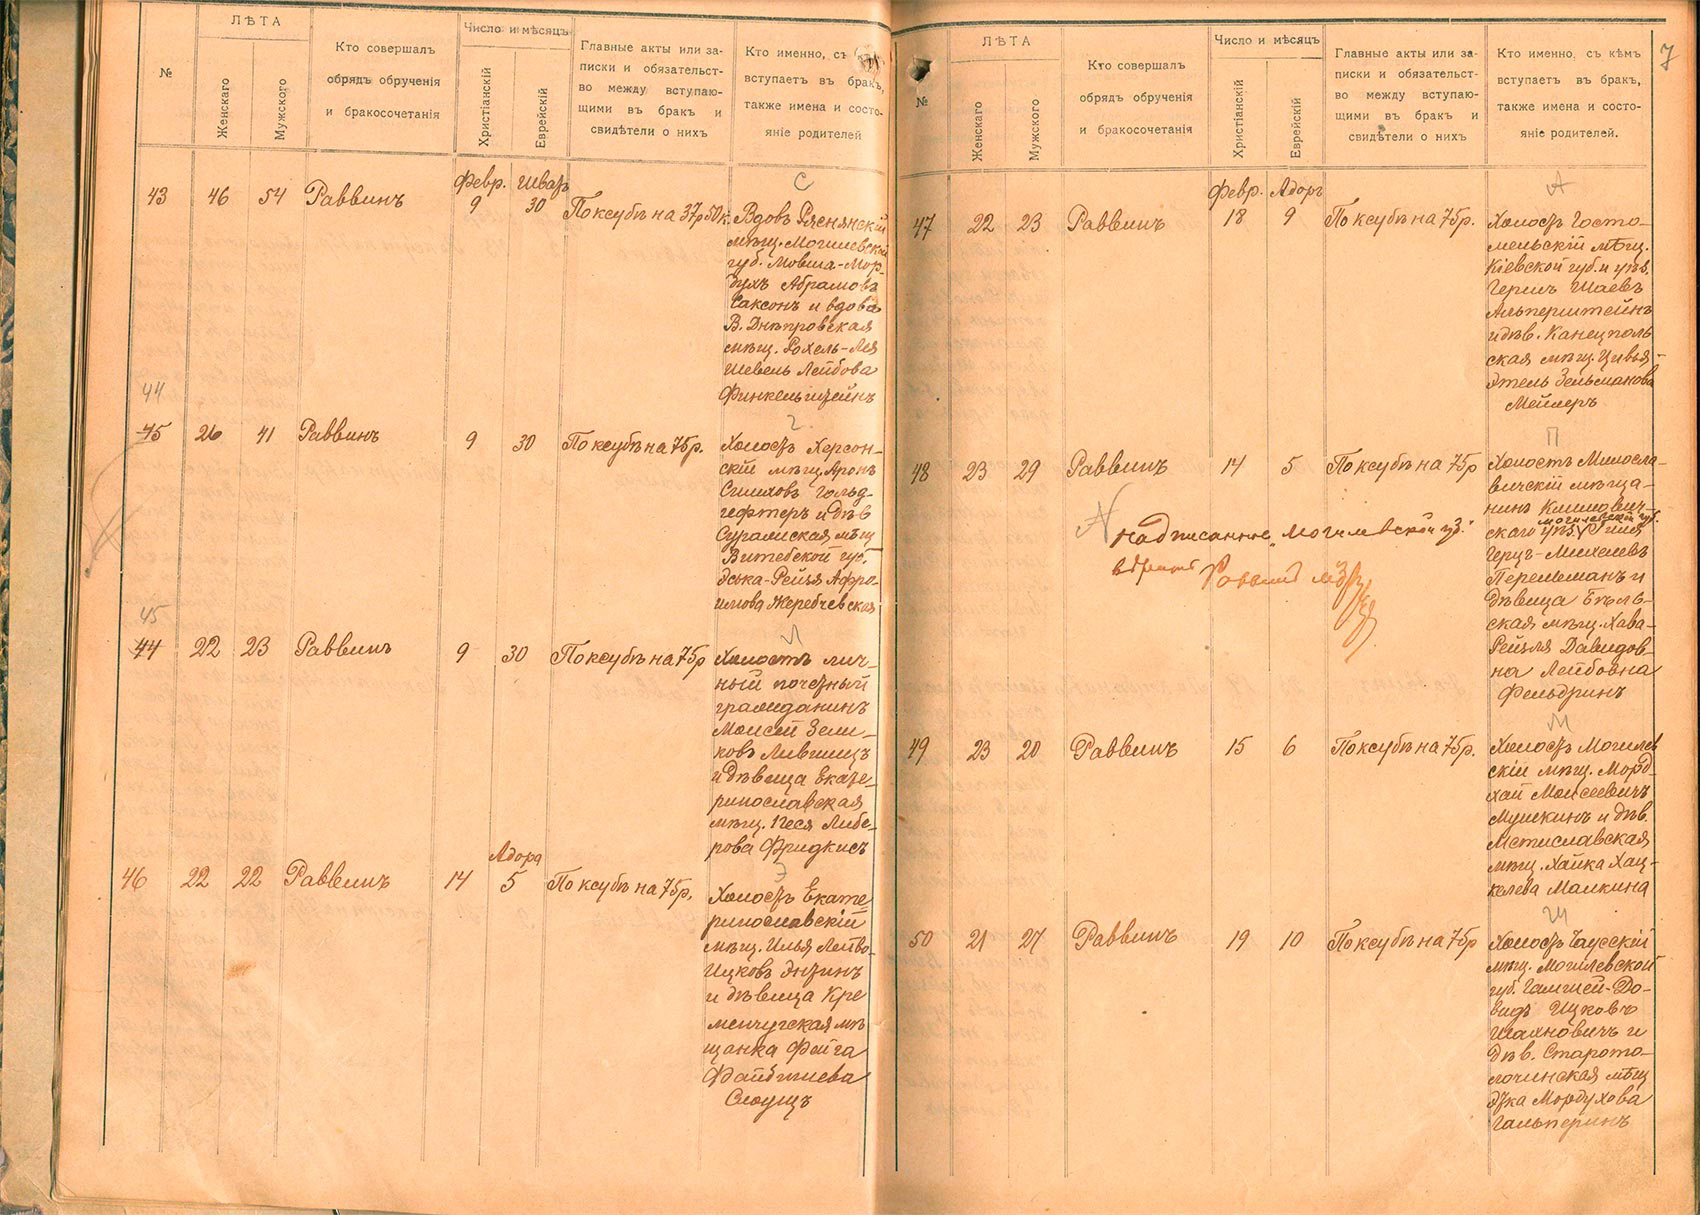 №
ЛѢТА
Женскаго
Мужского
Кто совершалъ
обрядъ обрученія
и бракосочетанія
Число и мѣсяцъ
Христіанскій
Еврейскій
Главные акты или за-
писки и обязательст-
во между вступаю-
щими въ бракъ и
свидѣтели о нихъ
Кто именно, съ
вступаетъ въ бракъ,
также имена и состо-
яніе родителей
С
Февр. Шватъ
43 46 54 Раввинъ 9 30 По ксубѣ на 37р50к.
Вдовъ Ряснянскій
мѣщ. Могилевской
губ. Мовша-Мор-
духъ Абрамовъ
Саксонъ и вдова
В. Днѣпровская
мѣщ. Рохель-Лея
Шевель Лейбова
Финкельштейнъ
44
45 26 41 Раввинъ 9 30 По ксубѣ на 75р.
Г
Холостъ Херсон-
скій мѣщ. Аронъ
Симховъ Гольд-
гефтеръ и дѣв
Суражская мѣщ
Витебской губ.
Эська-Рейзя Афро-
имова Жеребчевская
45
44 22 23 Раввинъ 9 30 По ксубѣ на 75р
Л
Холостъ лич-
ный почетный
гражданинъ
Моисей Зели-
ковъ Лившицъ
и дѣвица Екате-
ринославская
мѣщ. Песя Либе-
рова Фридкисъ
Адора
46 22 22 Раввинъ 14 5 По ксубѣ на 75р.
Э
Холостъ Екате
ринославскій
мѣщ. Илья Лейбо-
Ицковъ Энтинъ
и дѣвица Кре
менчугская мѣ
щанка Фейга
Файбишева
Слоущъ
7
№
ЛѢТА
Женскаго
Мужского
Кто совершалъ
обрядъ обрученія
и бракосочетанія
Число и мѣсяцъ
Христіанскій
Еврейскій
Главные акты или за-
писки и обязательст-
во между вступаю-
щими въ бракъ и
свидѣтели о нихъ
Кто именно, съ кѣмъ
вступаетъ въ бракъ,
также имена и состо-
яніе родителей.
А
Февр. Адоръ
47 22 23 Раввинъ 18 9 По ксубѣ на 75р.
Холостъ Госто-
мельскій мѣщ.
Кіевской губ. и уѣз.
Гершъ Шаевъ
Альперштейнъ
и дѣв. Канецполь
ская мѣщ. Цивья-
Этель Зельманова
Мейлеръ
П
48 23 29 Раввинъ 14 5 По ксубѣ на 75р
Холостъ Милосла-
вичскій мѣща-
нинъ Климович-
могилевской губ.
скаго уѣз. Гиля
Герцъ-Михелевъ
Перельманъ и
дѣвица Бѣль-
ская мѣщ. Хава-
Рейзля Давидов-
на Лейбовна
Фельдринъ
Надписанное „Могилевской губ."
вѣрно Раввинъ
М
49 23 20 Раввинъ 15 6 По ксубѣ на 75р.
Холостъ Могилев
скій мѣщ. Морд-
хай Моисеевичъ
Мушкинъ и дѣв.
Мстиславская
мѣщ. Хайка Хац-
келева Малкина
Ш
50 21 27 Раввинъ 19 10 По ксубѣ на 75р
Холостъ Чаусскій
мѣщ. Могилевской
губ. Гамшей-До-
видъ Ицковъ
Шахновичъ и
дѣв. Старото-
лочинская мѣщ
Этка Мордухова
Гальперинъ